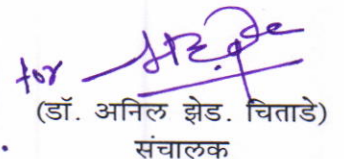 for
(डॉ. अनिल झेड. चिताडे)
संचालक